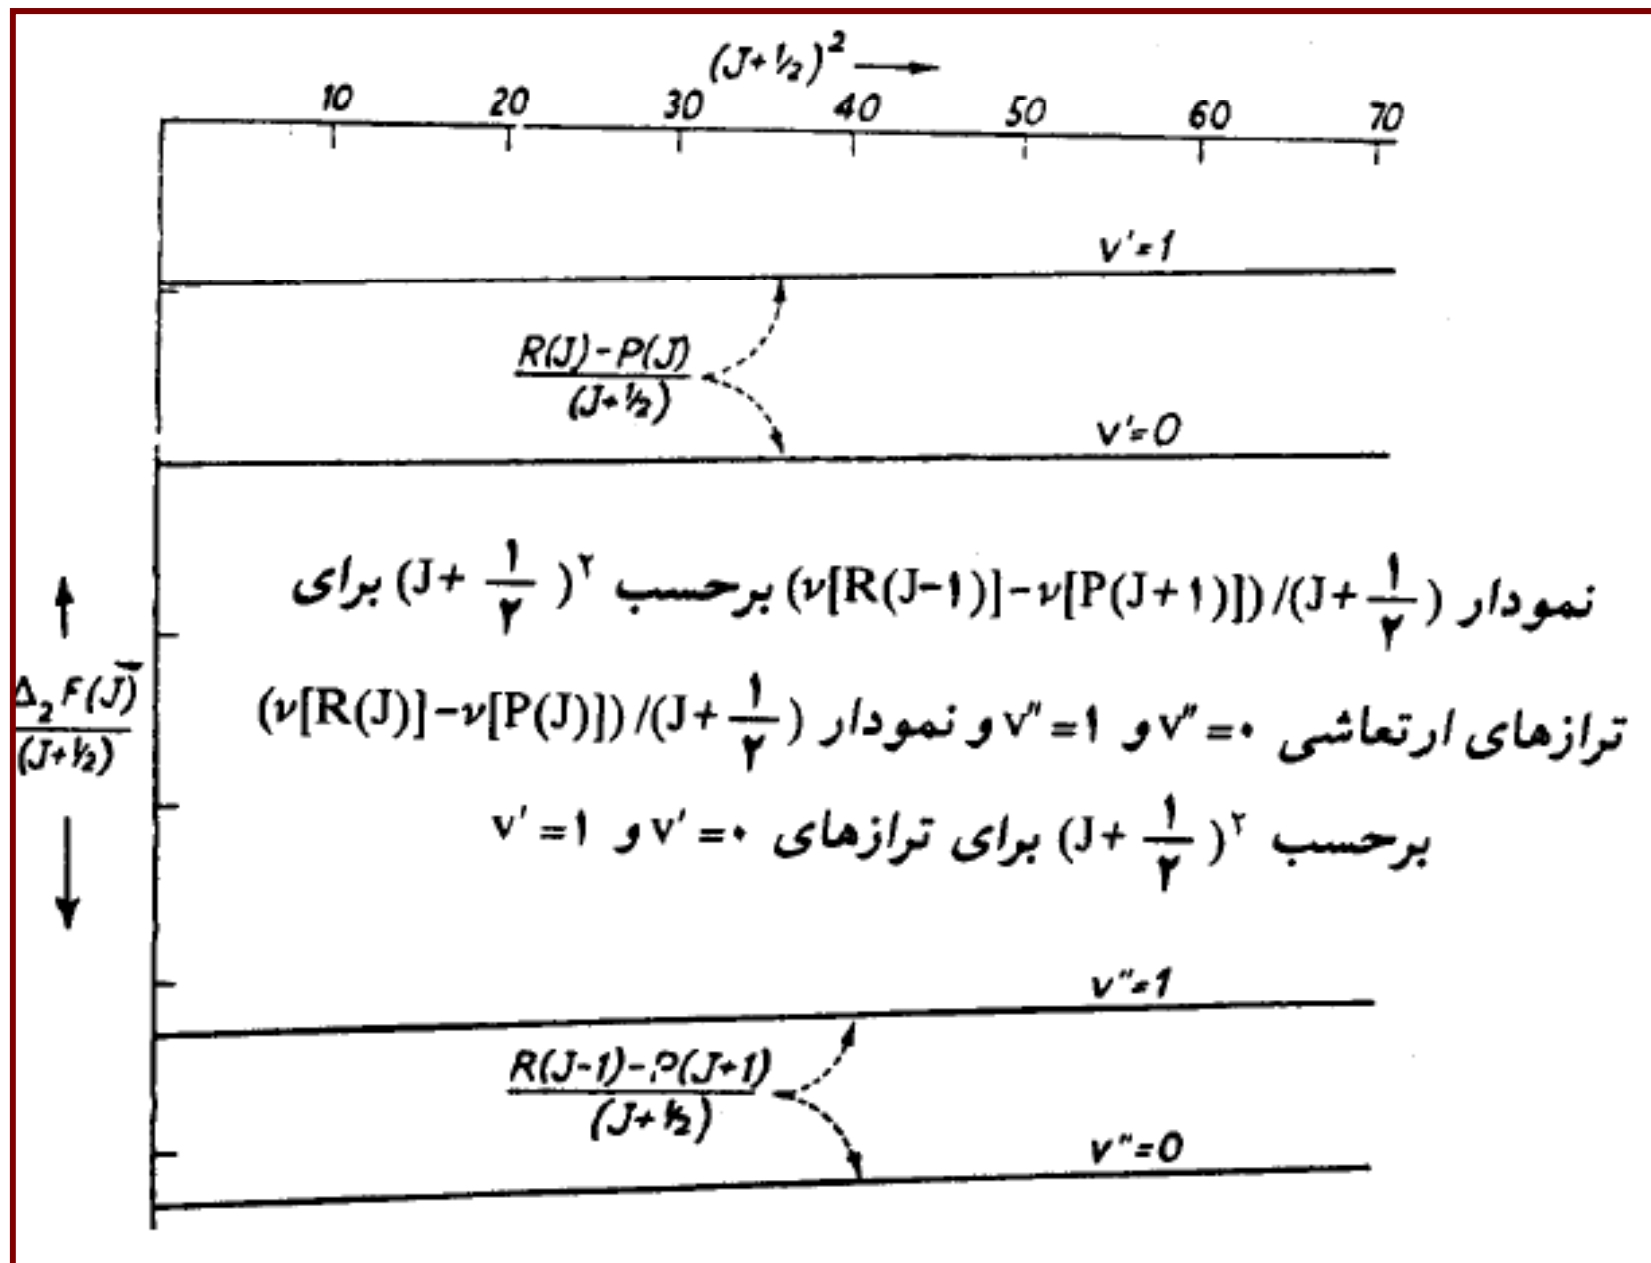 (J+½)² →
10 20 30 40 50 60 70
v'=1
R(J)-P(J)
(J+½)
v'=0
نمودار (ν[R(J-1)]-ν[P(J+1)])/(J+۱/۲) برحسب (J+۱/۲)۲ برای
ترازهای ارتعاشی v″=۰ و v″=۱ و نمودار (ν[R(J)]-ν[P(J)])/(J+۱/۲)
برحسب (J+۱/۲)۲ برای ترازهای v′=۰ و v′=۱
Δ₂F(J)
(J+½)
v"=1
R(J-1)-P(J+1)
(J+½)
v"=0